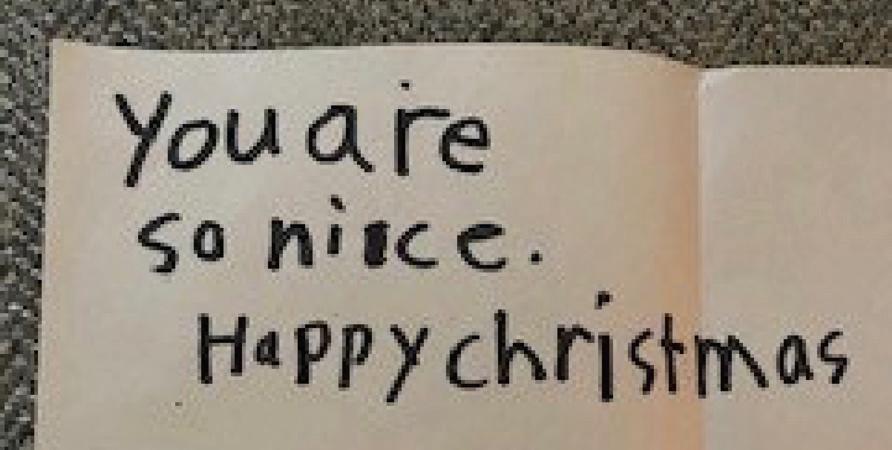 You are
so nice.
Happy christmas